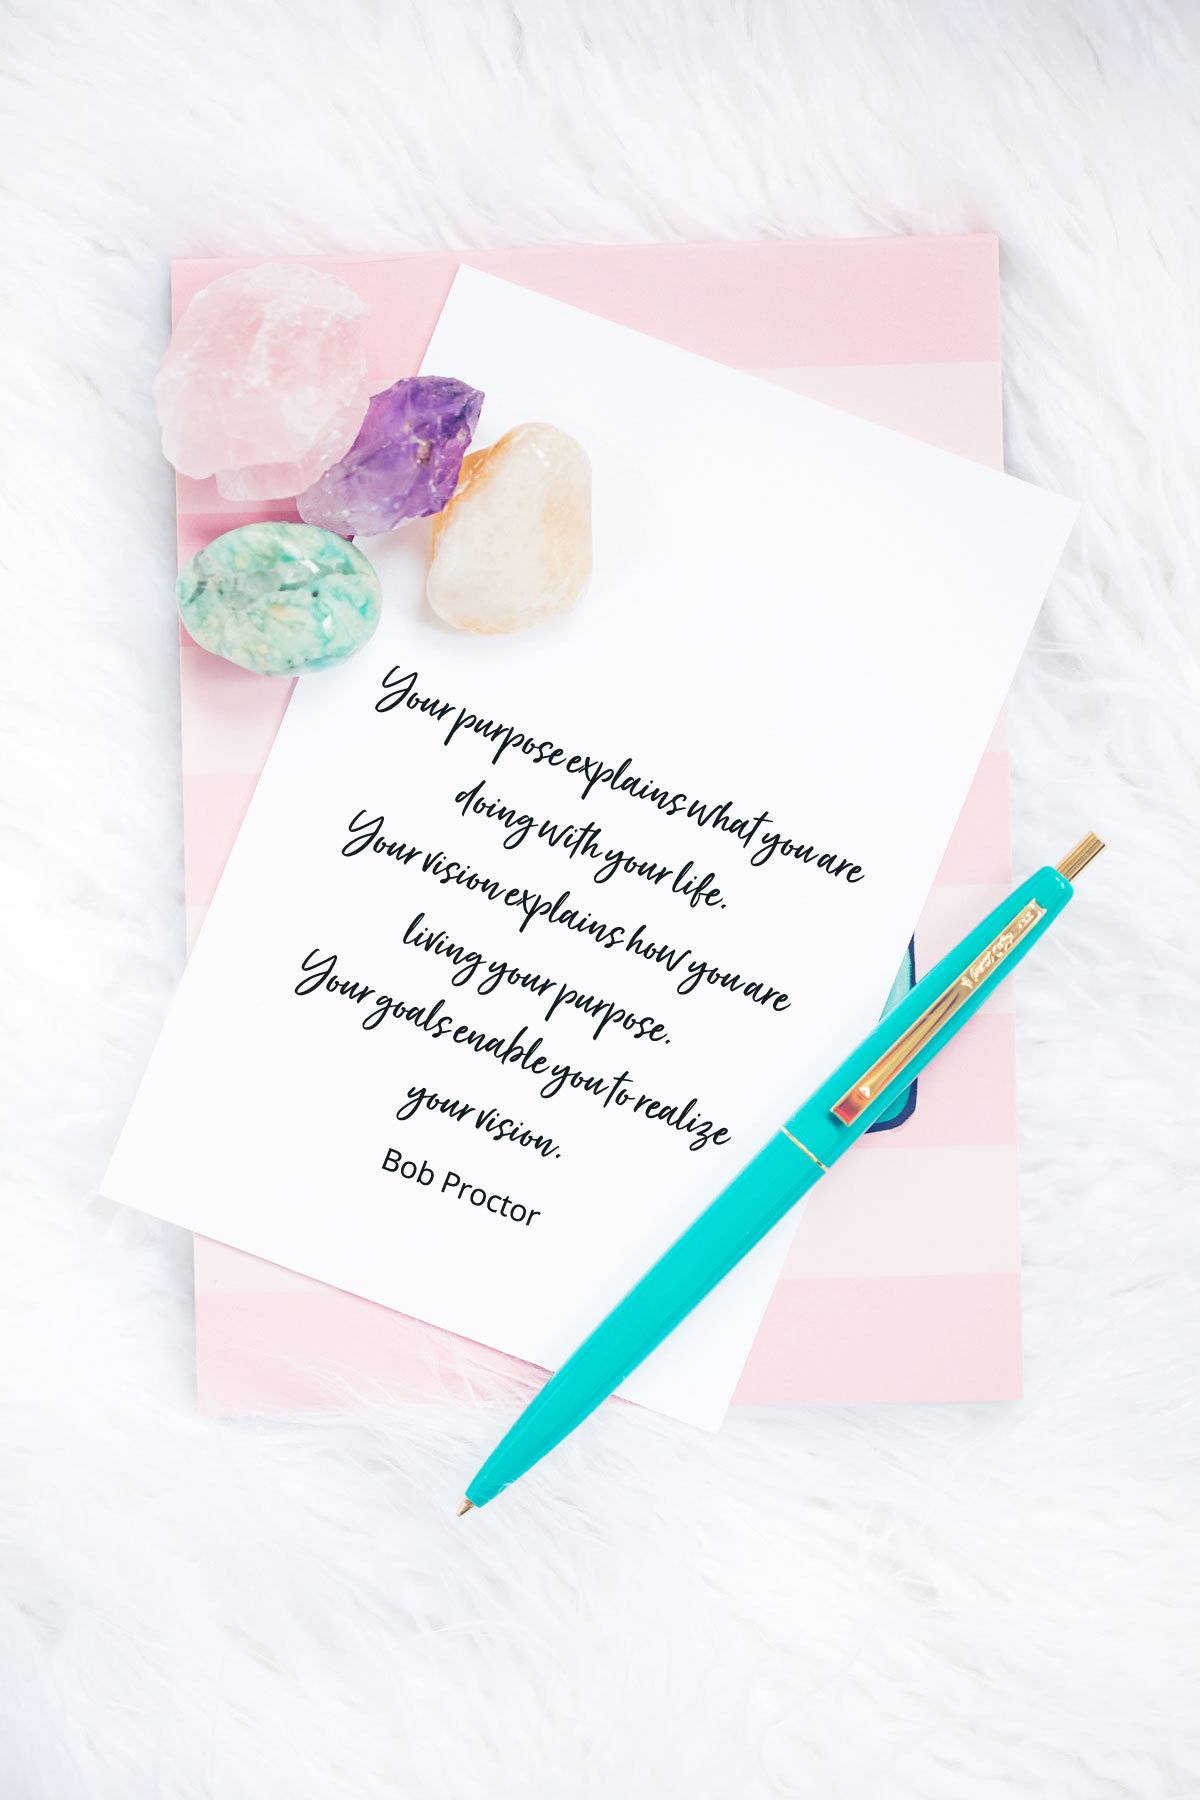 Your purpose explains what you are
doing with your life.
Your vision explains how you are
living your purpose.
Your goals enable you to realize
your vision.
Bob Proctor